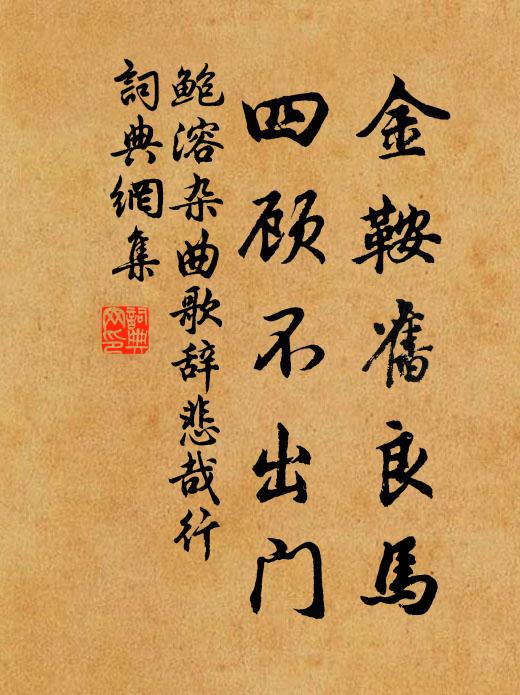 金鞍舊良馬
四顾不出门
鲍溶杂曲歌辞悲哉行
詞典網集
詞典
网印